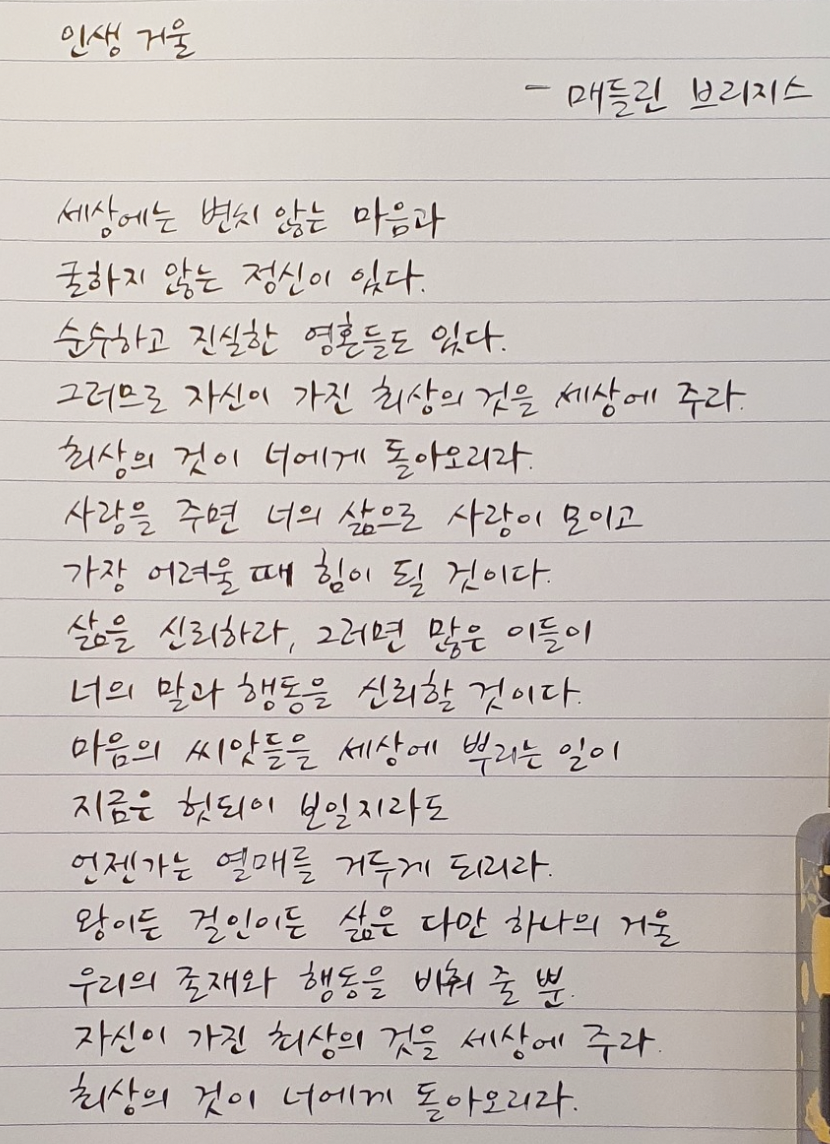 인생 거울
- 매들린 브리지스
세상에는 변치 않는 마음과
굴하지 않는 정신이 있다.
순수하고 진실한 영혼들도 있다.
그러므로 자신이 가진 최상의 것을 세상에 주라.
최상의 것이 너에게 돌아오리라.
사랑을 주면 너의 삶으로 사랑이 모이고
가장 어려울 때 힘이 될 것이다.
삶을 신뢰하라, 그러면 많은 이들이
너의 말과 행동을 신뢰할 것이다.
마음의 씨앗들을 세상에 뿌리는 일이
지금은 헛되이 보일지라도
언젠가는 열매를 거두게 되리라.
왕이든 걸인이든 삶은 다만 하나의 거울
우리의 존재와 행동을 비춰 줄 뿐.
자신이 가진 최상의 것을 세상에 주라.
최상의 것이 너에게 돌아오리라.